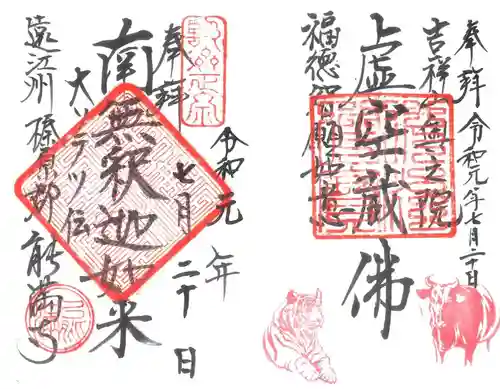 奉拝 令和元年七月二十日
吉祥 奥之院
上虚空蔵佛
福徳智願如意
奉拝
令和元年
七月二十日
南無釈迦如来
大ソテツ伝
遠江州 榛原郡 能満寺